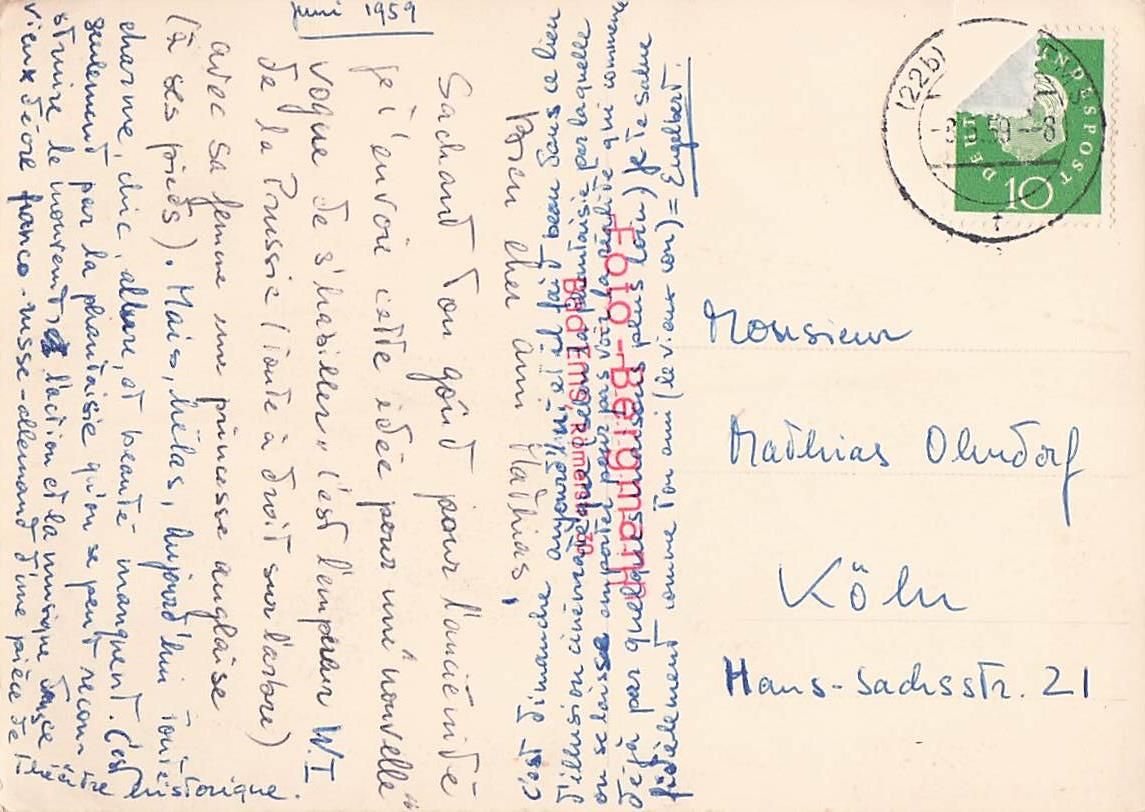 Juni 1959
Mon cher ami Mathias,
Sachant ton goût pour l'ancienité
je t'envoie cette idée pour une "nouvelle"
vogue de s'habiller" c'est l'empereur W. I
de la Prussie (toute à droit sur l'arbre)
avec sa femme une princesse anglaise
(à ses pieds). Mais, hélas, aujourd'hui toute
charme, chic, allure, et beauté manquent. C'est
seulement par la phantaisie qu'on se peut recon-
struire le mouvement, l'action et la musique dans ce
vieux décor franco-russe-allemand d'une pièce de théâtre
historique.
C'est dimanche aujourd'hui et il fait beau Sans ce bien
d'illusion cinématique par laquelle
on se laisse emporter pour pas voir la réalité qui commence
déjà par quelques maisons plus loin) Je te salue
fidèlement comme ton ami (le vieux con) = Engelbert.
Foto-Bergmann
Bad Ems, Römerstr. 30
(22b)
59 -8
DEUTSCHE BUNDESPOST
10
Monsieur
Mathias Ohndorf
Köln
Hans-Sachsstr. 21